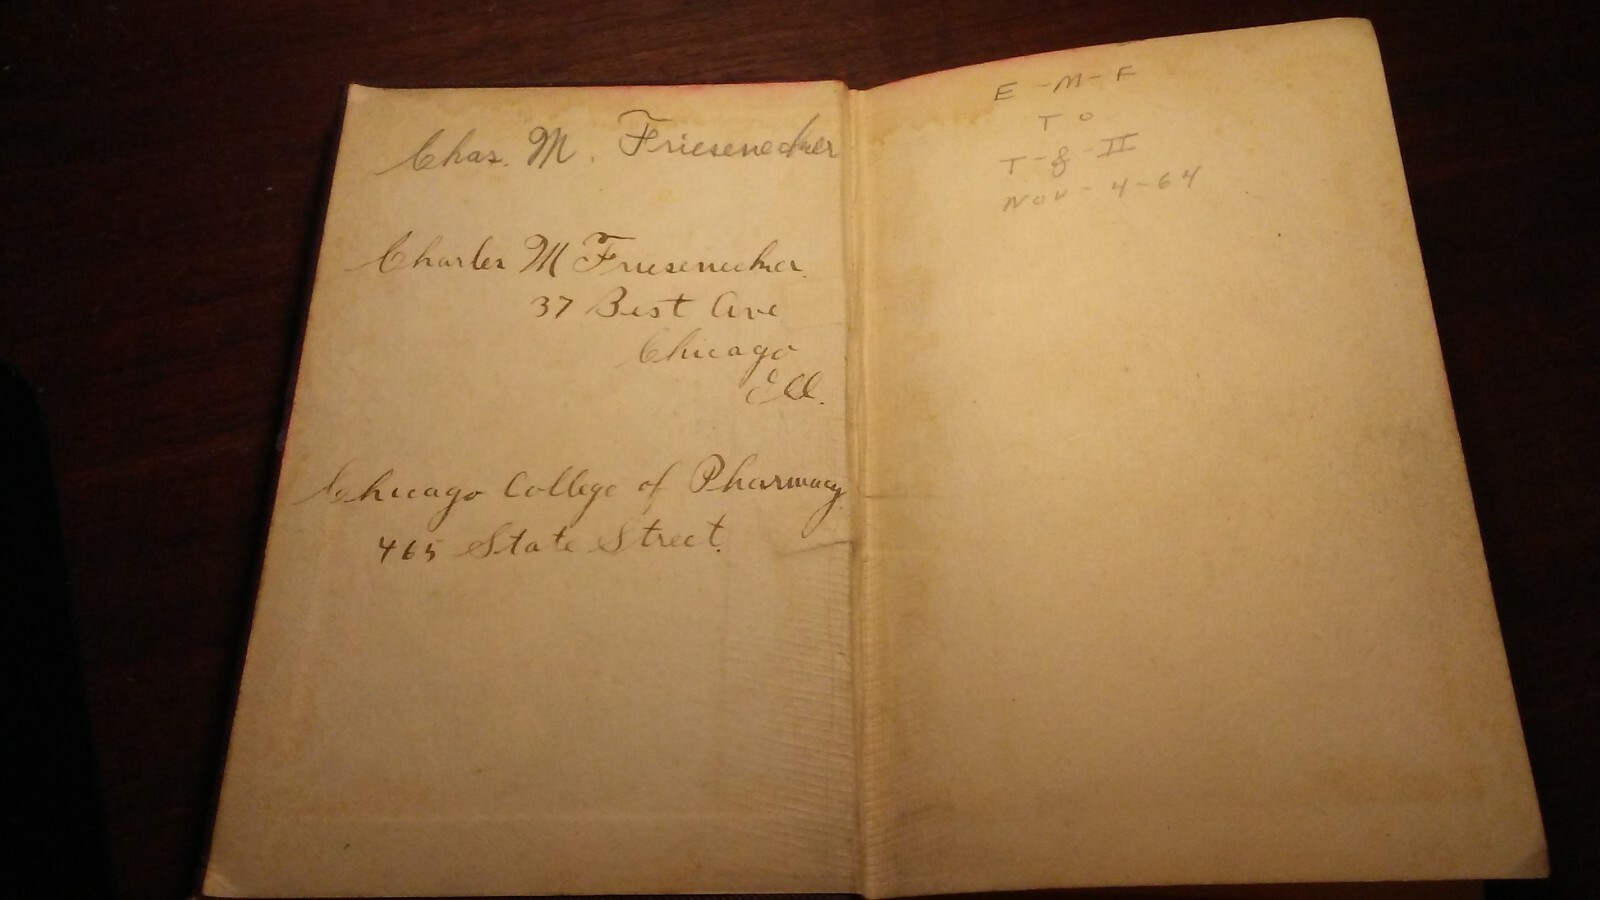 Chas. M. Friesenecker
Charles M Friesenecker.
37 Best Ave
Chicago
Ill.
Chicago College of Pharmacy.
465 State Street.
E-M-F
TO
T-&-II
Nov-4-64